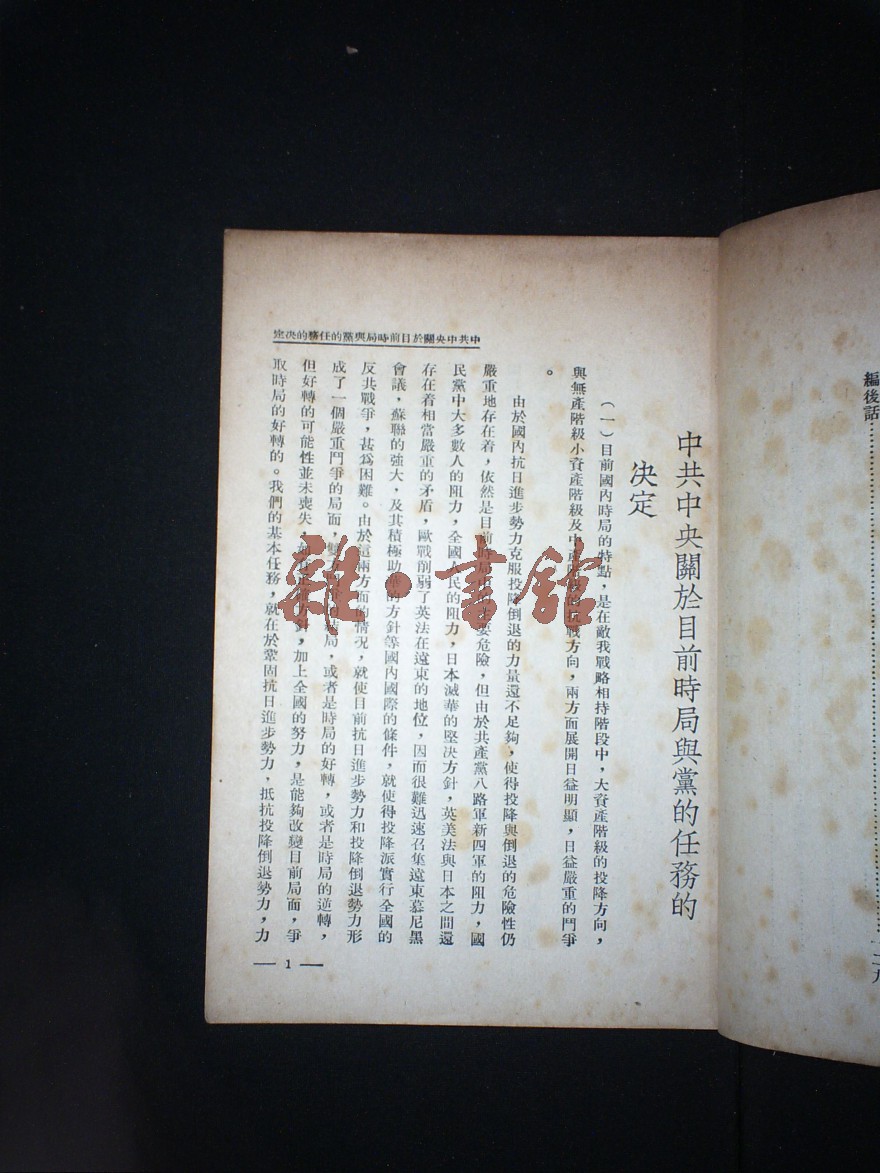 編後話……二九
中共中央關於目前時局與黨的任務的
決定
（一）目前國內時局的特點，是在敵我戰略相持階段中，大資產階級的投降方向，
與無產階級小資產階級及中產階級的抗戰方向，兩方面展開日益明顯，日益嚴重的鬥爭
。
由於國內抗日進步勢力克服投降倒退的力量還不足夠，使得投降與倒退的危險性仍
嚴重地存在着，依然是目前時局中的主要危險，但由於共產黨八路軍新四軍的阻力，國
民黨中大多數人的阻力，全國人民的阻力，日本滅華的堅決方針，英美法與日本之間還
存在着相當嚴重的矛盾，歐戰削弱了英法在遠東的地位，因而很難迅速召集遠東慕尼黑
會議，蘇聯的強大，及其積極助華的方針等國內國際的條件，就使得投降派實行全國的
反共戰爭，甚爲困難。由於這兩方面的情況，就使目前抗日進步勢力和投降倒退勢力形
成了一個嚴重鬥爭的局面，雙方 局，或者是時局的好轉，或者是時局的逆轉，
但好轉的可能性並未喪失， 方針，加上全國的努力，是能夠改變目前局面，爭
取時局的好轉的。我們的基本任務，就在於鞏固抗日進步勢力，抵抗投降倒退勢力，力
中共中央關於目前時局與黨的任務的決定
— 1 —
雜·書館